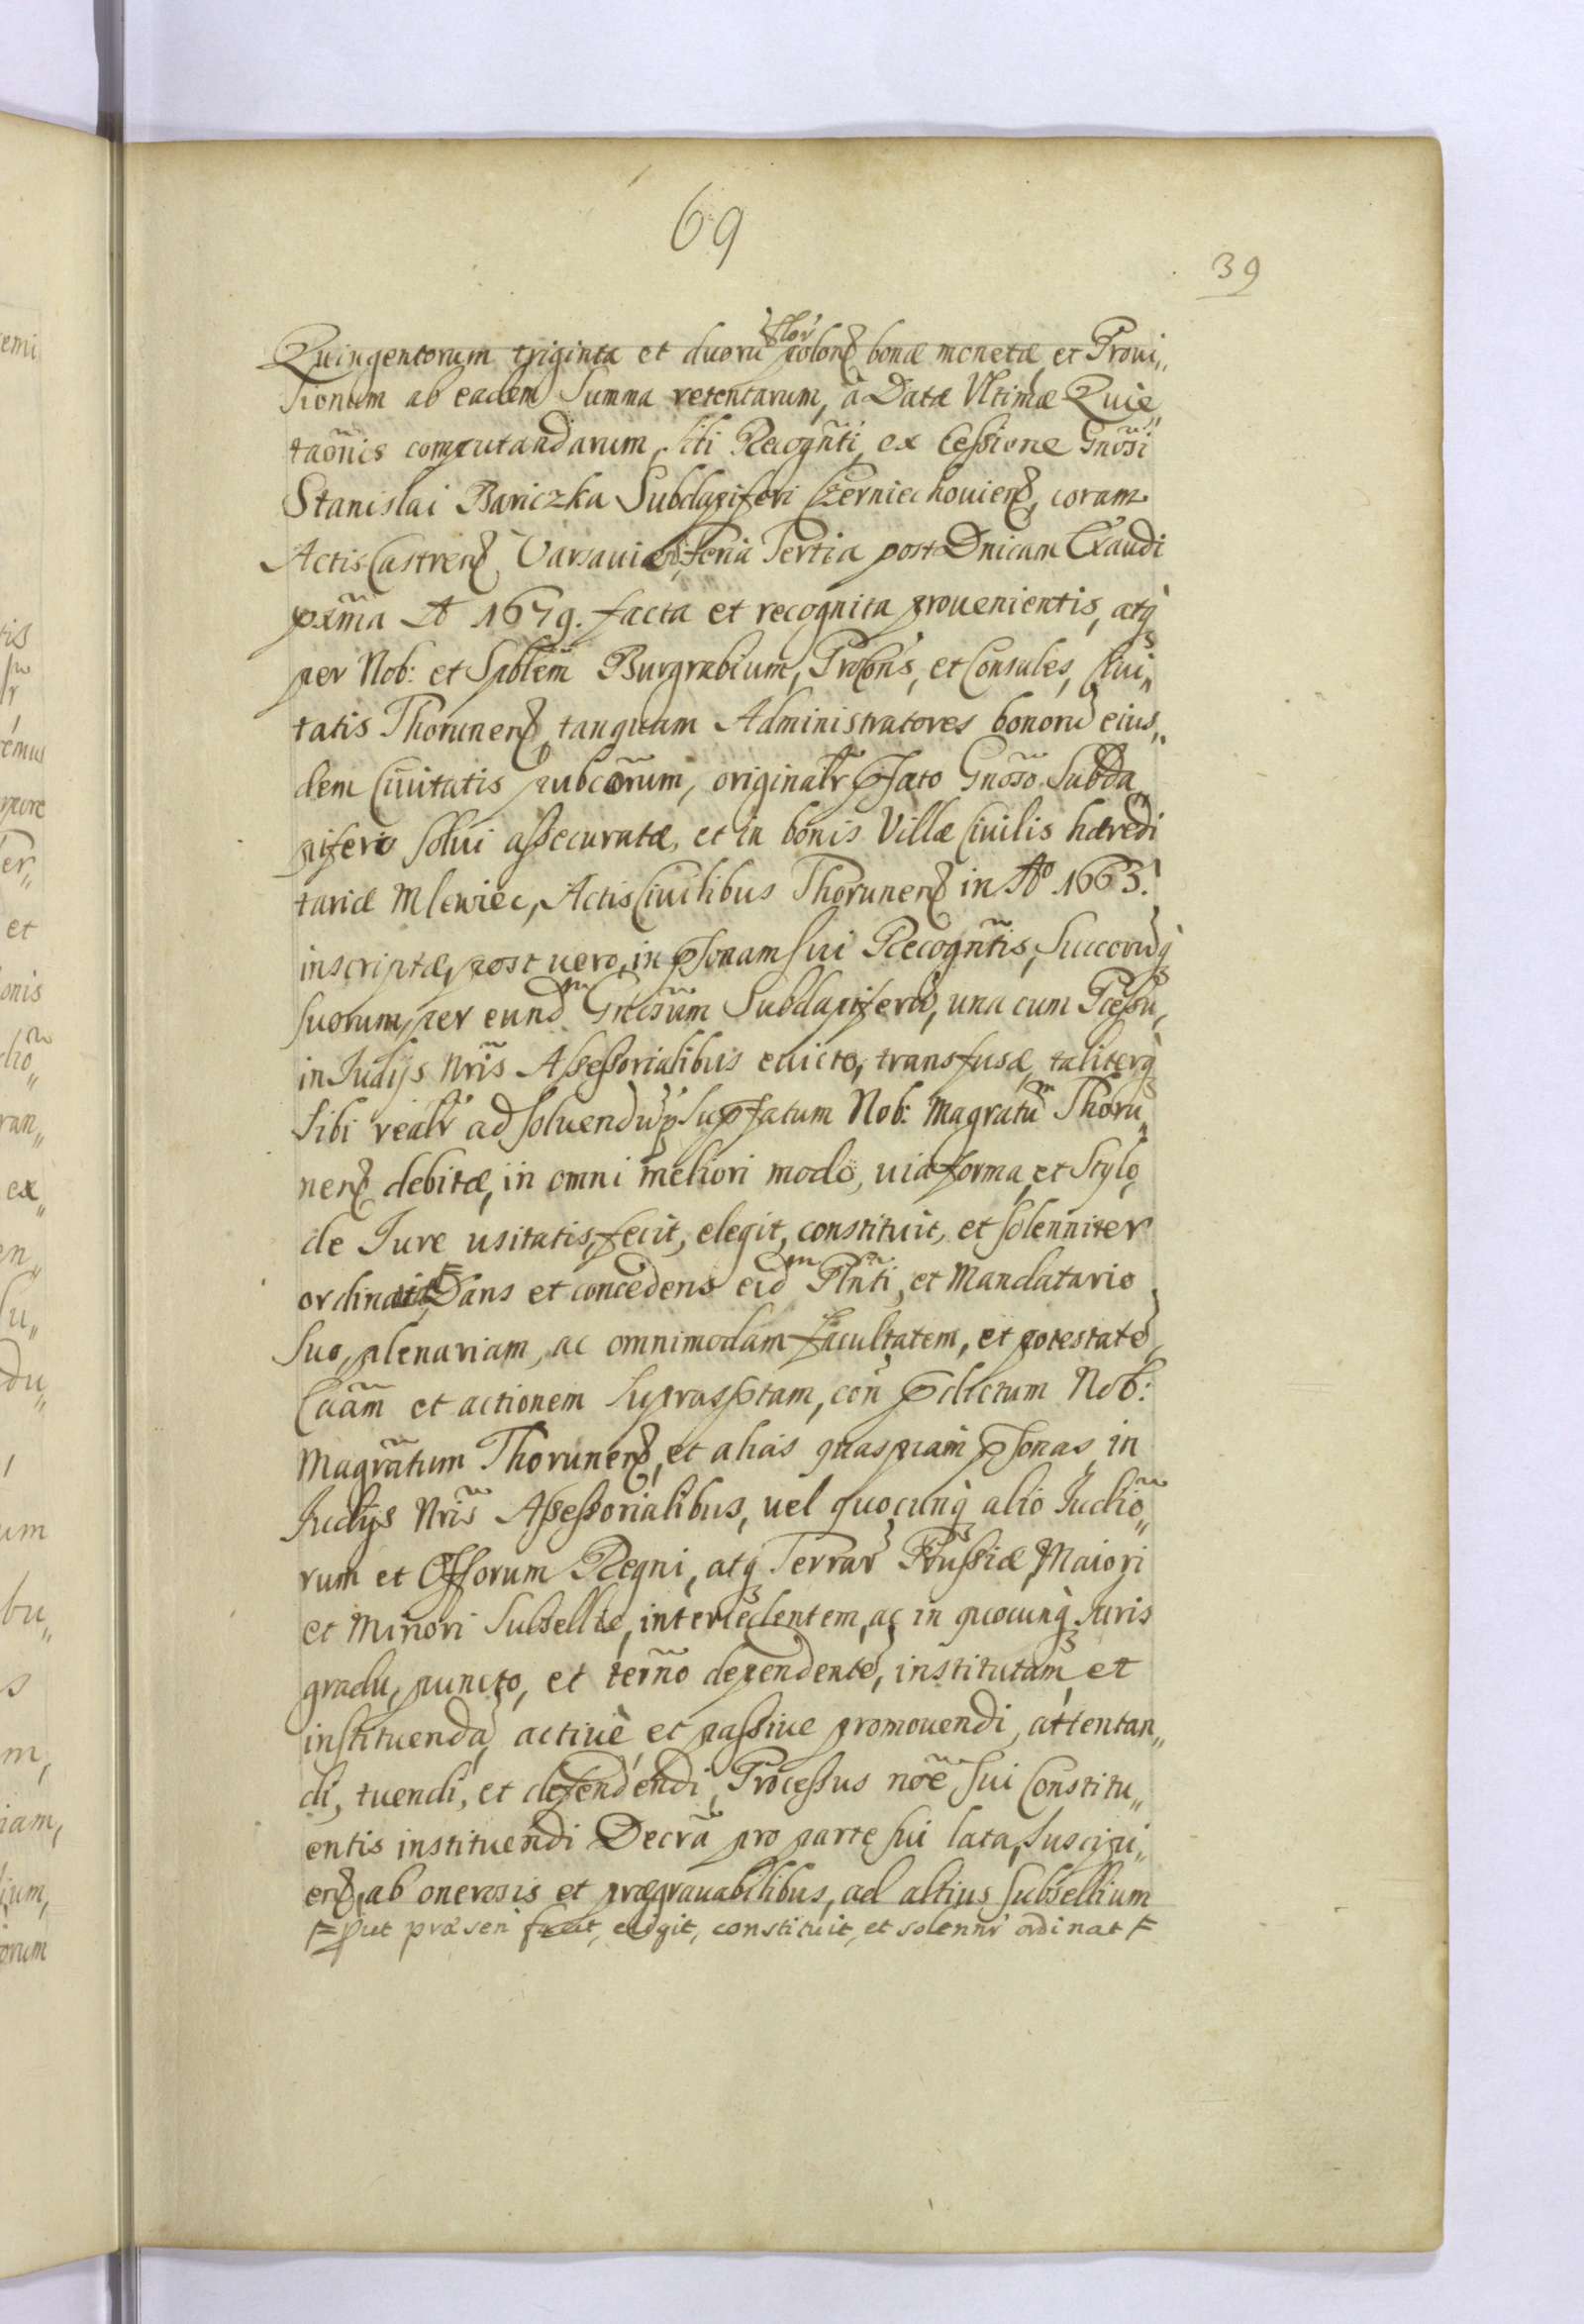 69
39
Quingentorum triginta et duorũ flor polon̄ bonæ monetæ, et Proui„
sionum ab eadem Summa retentarum, à Data Vltimæ Quie„
taõnis computandarum, sibi Recogñti, ex Cessione Gñosi
Stanislai Bariczka Subdapiferi Czerniechouien̄, coram
Actis Castren̄ Varsauien̄, Feria Tertia post Dnicam Exaudi
pxm̃a Aº 1679. facta et recognita prouenientis, atq́
per Nob: et Spblem̃ Burgrabium, Procons̃, et Consules, Ciui„
tatis Thorunen̄, tanquam Administratores bonorũ eius„
dem Ciuitatis pubcõrum, originalr̃ p̃fato Gñoso Subda„
pifero solui assecuratæ, et in bonis Villæ Ciuilis hæredi
tariæ Mlewiec, Actis Ciuilibus Thorunen̄ in Aº 1663.
inscriptæ, post uero, in p̃sonam sui Recogñtis, Succorũq́
suorum, per eundm Gñosum Subdapiferũ, una cum Pcessu,
in Iudijs Nr̃is Assessorialibus euicto, transfusæ, taliterq́
sibi realr̃ ad soluendũ p̃ sup̃fatum Nob: Magratũm Thoru„
nen̄ debitæ, in omni meliori modo, uia forma, et Stylo,
de Iure usitatis, fecit, elegit, constituit, et solenniter
ordinauit, Dans et concedens eidm Plñti, et Mandatario
suo, plenariam, ac omnimodam facultatem, et potestatẽ,
Caãm et actionem suprasptam, con̄ p̃dictum Nob:
Magrãtum Thorunen̄, et alias quaspiam p̃sonas, in
Iudijs Nr̃is Assessorialibus, uel quocunq́ alio Iudiõ„
rum et Offorum Regni, atq́ Terrar̃ Prussiæ, Maiori
et Minori Subsellio, intercedentem, ac in quocunq́ Iuris
gradu, puncto, et term̃no dependentẽ, institutam, et
instituendã, actiuè et passiue promouendi, attentan„
di, tuendi, et defendendi, Processus nõe sui Constitu„
entis instituendi Decrã pro parte sui lata, suscipi„
en̄, ab onerosis et prægrauabilibus, ad altius subsellium
prut præsen facit, eligit, constituit, et solennr̃ ordinat